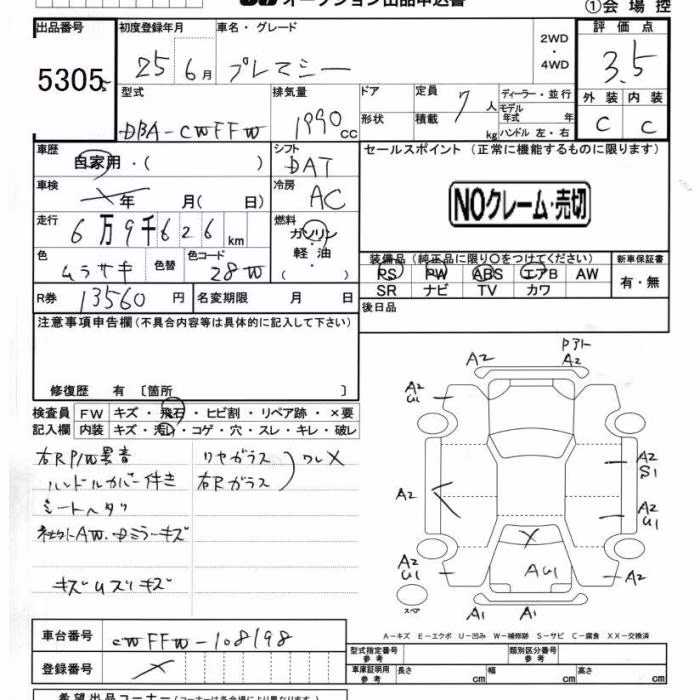 オークション出品申込書
①会場控
出品番号 初度登録年月 車名・グレード 2WD・4WD 評価点
5305 25年6月 プレマシー 3.5
型式 排気量 ドア 定員 7人 ディーラー・並行 外装 内装
DBA-CWFFW 1990cc 形状 積載 kg モデル年式 年 ハンドル 左・右 C C
車歴 自家用・( ) シフト DAT セールスポイント (正常に機能するものに限ります)
車検 年 月(日) 冷房 AC
NOクレーム・売切
走行 6万9千626km 燃料 ガソリン・軽油・( )
色 ムラサキ 色替 色コード 28W
装備品 (純正品に限り○をつけてください) 新車保証書
PS PW ABS エアB AW 有・無
SR ナビ TV カワ
R券 13560円 名変期限 月 日 後日品
注意事項申告欄 (不具合内容等は具体的に記入して下さい)
修復歴 有 〔箇所 〕
検査員記入欄 FW キズ・飛石・ヒビ割・リペア跡・×要
内装 キズ・汚レ・コゲ・穴・スレ・キレ・破レ
右RP/W異音 リヤガラス
ハンドルカバー付き 右Rガラス ワレX
シートヘタリ
社外AW.ドミラーキズ
キズUスリキズ
Pアト
A2 A2
A2 U1 A2
A2 S1
A2
A2 U1
X
A2 U1 AU1 A2
スペア A1 A1
A-キズ E-エクボ U-凹み W-補修跡 S-サビ C-腐食 XX-交換済
車台番号 CWFFW-108198
登録番号 X
型式指定番号 参考 類別区分番号 参考
車庫証明用 参考 長さ cm 幅 cm 高さ cm
希望出品コーナー (コーナーは各会場により異なります)